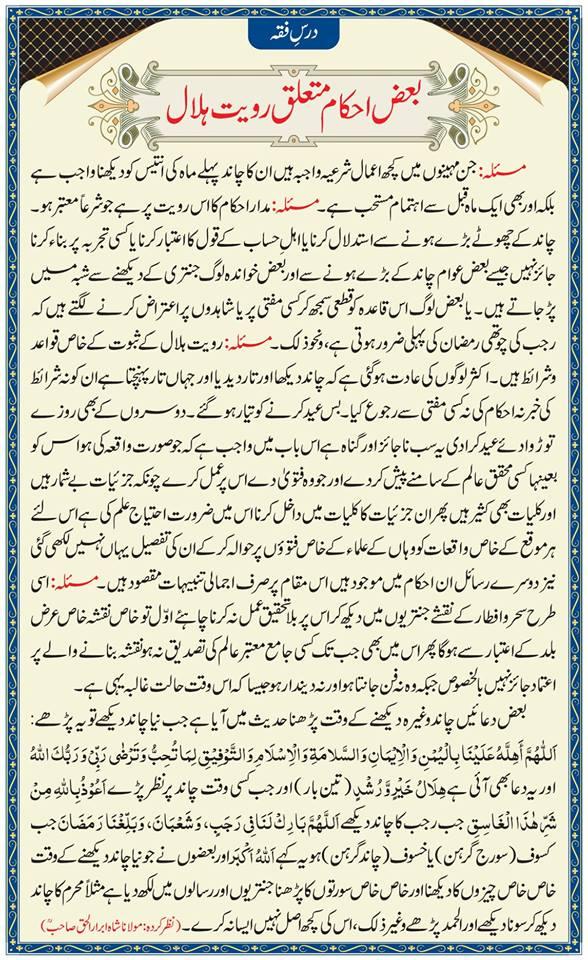 درسِ فقہ
بعض احکام متعلق رویت ہلال
مسئلہ: جن مہینوں میں کچھ اعمال شرعیہ واجبہ ہیں ان کا چاند پہلے ماہ کی انتیس کو دیکھنا واجب ہے
بلکہ اور بھی ایک ماہ قبل سے اہتمام مستحب ہے۔ مسئلہ: مدار احکام کا اس رویت پر ہے جو شرعاً معتبر ہو۔
چاند کے چھوٹے بڑے ہونے سے استدلال کرنا یا اہلِ حساب کے قول کا اعتبار کرنا یا کسی تجربہ پر بناء کرنا
جائز نہیں جیسے بعض عوام چاند کے بڑے ہونے سے اور بعض خواندہ لوگ جنتری کے دیکھنے سے شبہ میں
پڑ جاتے ہیں۔ یا بعض لوگ اس قاعدہ کو قطعی سمجھ کر کسی مفتی پر یا شاہدوں پر اعتراض کرنے لگتے ہیں کہ
رجب کی چوتھی رمضان کی پہلی ضرور ہوتی ہے، ونحو ذلک۔ مسئلہ: رویت ہلال کے ثبوت کے خاص قواعد
و شرائط ہیں۔ اکثر لوگوں کی عادت ہو گئی ہے کہ چاند دیکھا اور تار دیدیا اور جہاں تار پہنچتا ہے ان کو نہ شرائط
کی خبر نہ احکام کی نہ کسی مفتی سے رجوع کیا۔ بس عید کرنے کو تیار ہو گئے۔ دوسروں کے بھی روزے
توڑوا دئے عید کرا دی یہ سب ناجائز اور گناہ ہے اس باب میں واجب ہے کہ جو صورت واقعہ کی ہو اس کو
بعینہا کسی محقق عالم کے سامنے پیش کر دے اور جو وہ فتویٰ دے اس پر عمل کرے چونکہ جزئیات بے شمار ہیں
اور کلیات بھی کثیر ہیں پھر ان جزئیات کا کلیات میں داخل کرنا اس میں ضرورت احتیاج علم کی ہے اس لئے
ہر موقع کے خاص واقعات کو وہاں کے علماء کے خاص فتووں پر حوالہ کر کے ان کی تفصیل یہاں نہیں لکھی گئی
نیز دوسرے رسائل ان احکام میں موجود ہیں اس مقام پر صرف اجمالی تنبیہات مقصود ہیں۔ مسئلہ: اسی
طرح سحر و افطار کے نقشے جنتریوں میں دیکھ کر اس پر بلا تحقیق عمل نہ کرنا چاہئے اوّل تو خاص نقشہ خاص عرض
بلد کے اعتبار سے ہوگا پھر اس میں بھی جب تک کسی جامع معتبر عالم کی تصدیق نہ ہو نقشہ بنانے والے پر
اعتماد جائز نہیں بالخصوص جبکہ وہ نہ فن جانتا ہو اور نہ دیندار ہو جیسا کہ اس وقت حالت غالبہ یہی ہے۔
بعض دعائیں چاند وغیرہ دیکھنے کے وقت پڑھنا حدیث میں آیا ہے جب نیا چاند دیکھے تو یہ پڑھے:
اَللّٰهُمَّ اَهِلَّهٗ عَلَيْنَا بِالْيُمْنِ وَالْاِيْمَانِ وَالسَّلَامَةِ وَالْاِسْلَامِ وَالتَّوْفِيْقِ لِمَا تُحِبُّ وَتَرْضٰى رَبِّىْ وَرَبُّكَ اللهُ
اور یہ دعا بھی آئی ہے هِلَالُ خَيْرٍ وَّرُشْدٍ (تین بار) اور جب کسی وقت چاند پر نظر پڑے اَعُوْذُ بِاللهِ مِنْ
شَرِّ هٰذَا الْغَاسِقِ جب رجب کا چاند دیکھے اَللّٰهُمَّ بَارِكْ لَنَا فِىْ رَجَبٍ، وَشَعْبَانَ، وَبَلِّغْنَا رَمَضَانَ جب
کسوف (سورج گرہن) یا خسوف (چاند گرہن) ہو یہ کہے اَللهُ اَكْبَرُ اور بعضوں نے جو نیا چاند دیکھنے کے وقت
خاص خاص چیزوں کا دیکھنا اور خاص خاص سورتوں کا پڑھنا جنتریوں اور رسالوں میں لکھ دیا ہے مثلاً محرم کا چاند
دیکھ کر سونا دیکھے اور الحمد پڑھے وغیر ذلک، اس کی کچھ اصل نہیں ایسا نہ کرے۔ (نظر کردہ: مولانا شاہ ابرار الحق صاحبؒ)